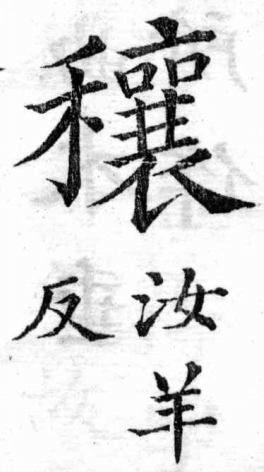 穰
汝羊
反